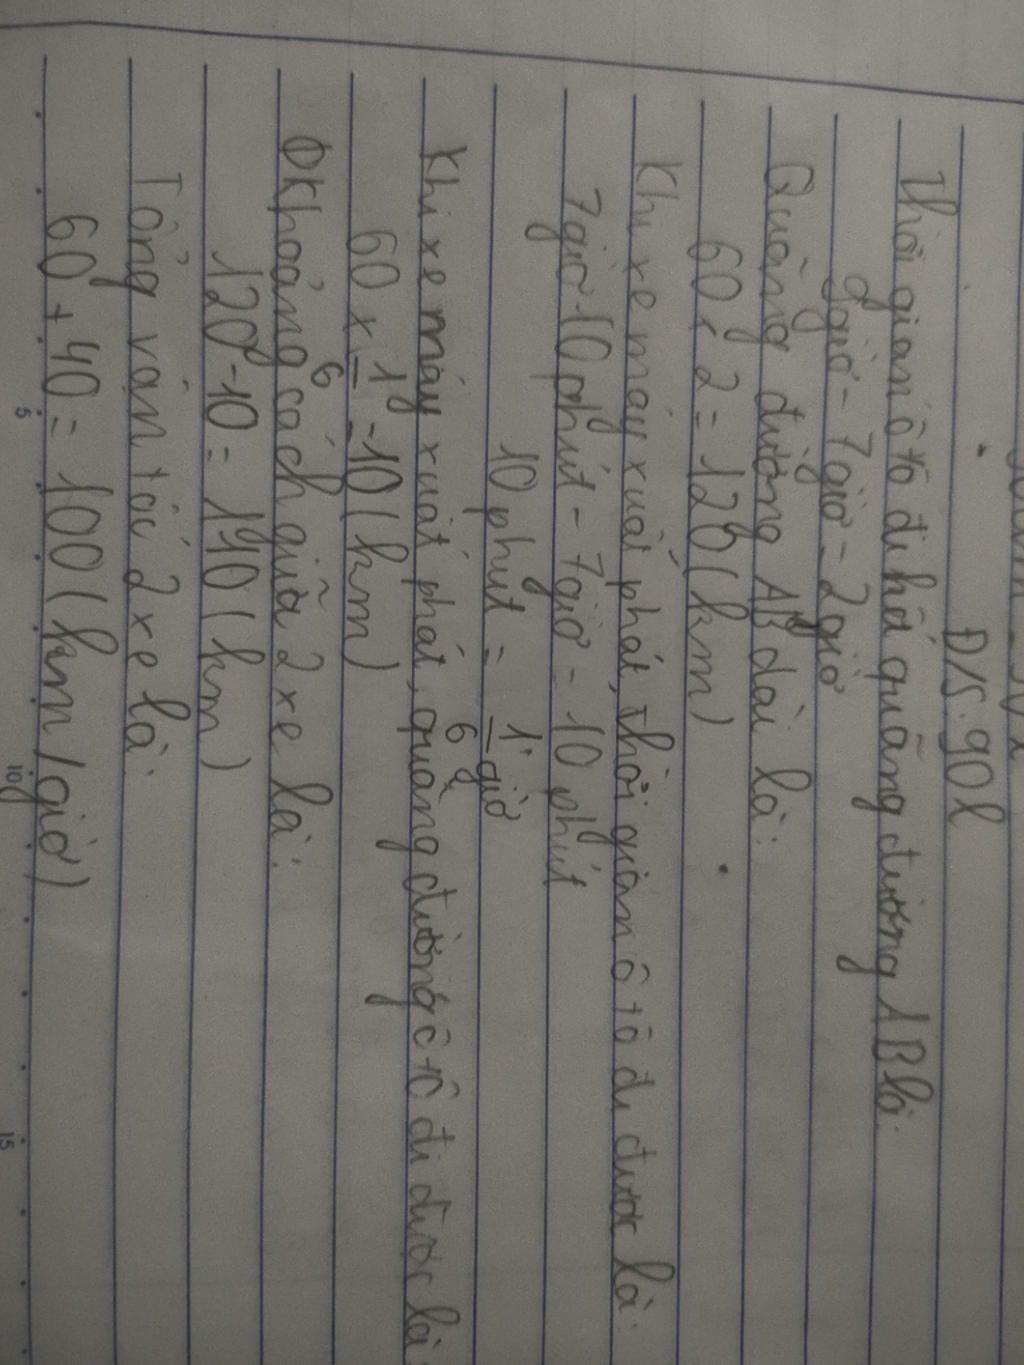 Đ/S: 90l
Thời gian ô tô đi hết quãng đường AB là:
9giờ - 7giờ = 2giờ
Quãng đường AB dài là:
60 x 2 = 120 (km)
Khi xe máy xuất phát, thời gian ô tô đi được là:
7giờ 10 phút - 7giờ = 10 phút
10 phút = 1/6 giờ
Khi xe máy xuất phát, quãng đường ô tô đi được là:
60 x 1/6 = 10 (km)
Khoảng cách giữa 2 xe là:
120 - 10 = 110 (km)
Tổng vận tốc 2 xe là:
60 + 40 = 100 (km/giờ)
5
10
15